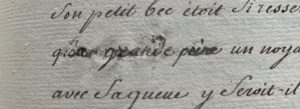 Son petit bec étoit si resse
qu'a grande peine un noya
avec sa queue y seroit-il